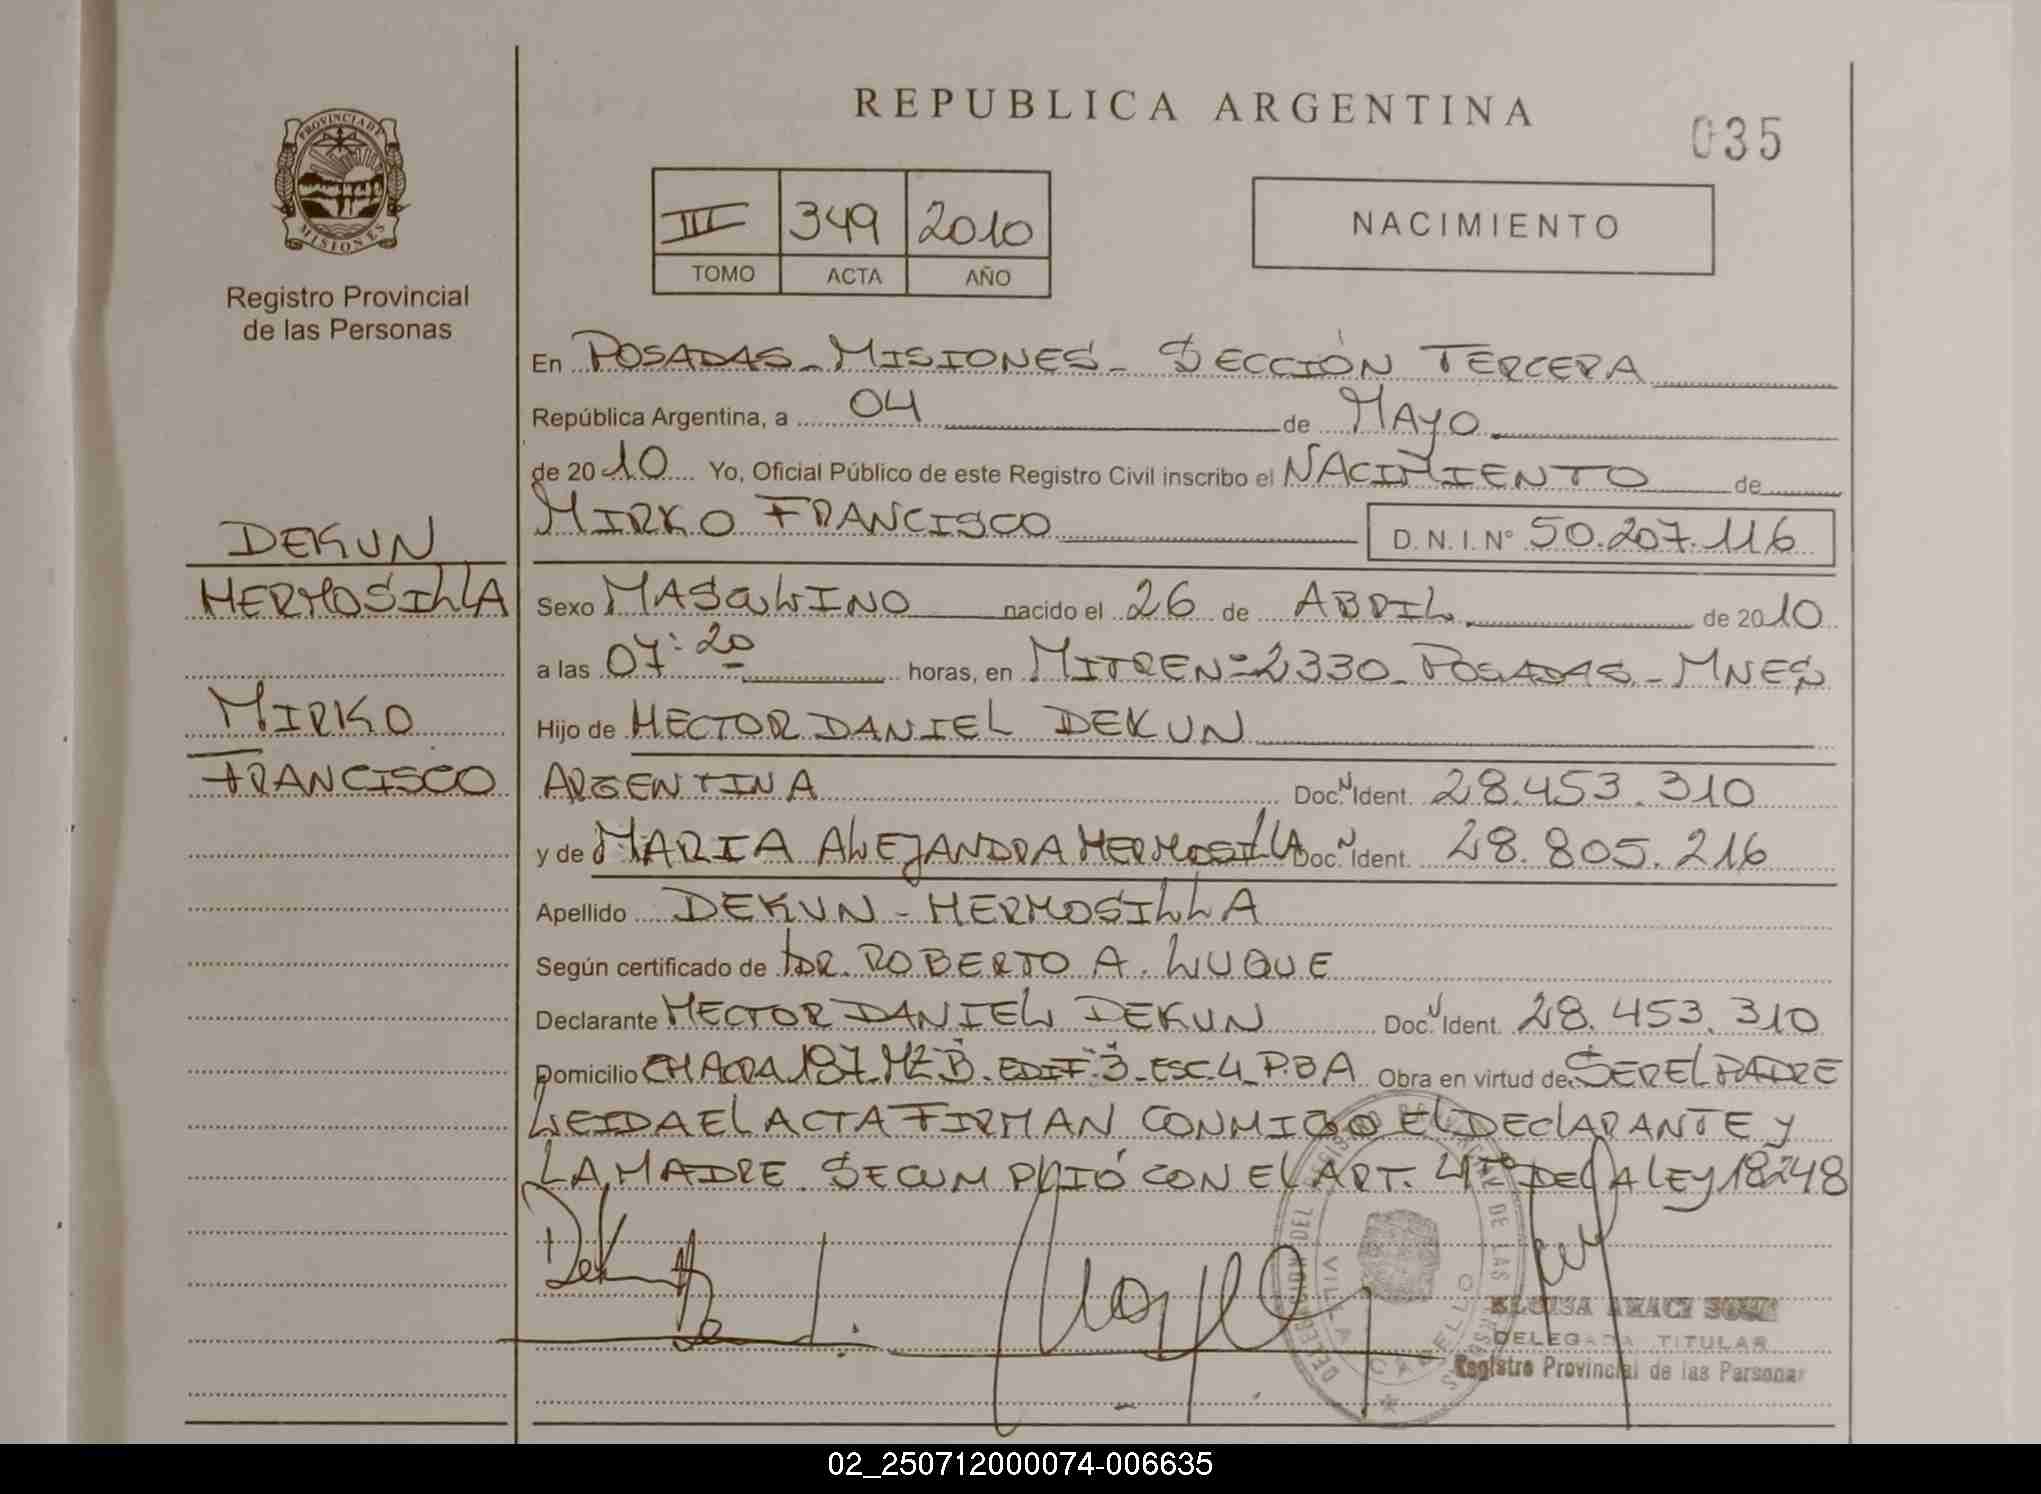 REPUBLICA ARGENTINA
035
PROVINCIA DE
MISIONES
Registro Provincial
de las Personas
III 349 2010
TOMO ACTA AÑO
NACIMIENTO
En POSADAS - MISIONES - SECCIÓN TERCERA
República Argentina, a 04 de MAYO
de 2010 Yo, Oficial Público de este Registro Civil inscribo el NACIMIENTO de
MIRKO FRANCISCO D.N.I.Nº 50.207.116
DEKUN
HERMOSILLA
MIRKO
FRANCISCO
Sexo MASCULINO nacido el 26 de ABRIL de 2010
a las 07:20 horas, en MITRE Nº 2330 - POSADAS - MNES
Hijo de HECTOR DANIEL DEKUN
ARGENTINA Doc. Ident. 28.453.310
y de MARIA ALEJANDRA HERMOSILLA Doc. Ident. 28.805.216
Apellido DEKUN - HERMOSILLA
Según certificado de DR. ROBERTO A. LUQUE
Declarante HECTOR DANIEL DEKUN Doc. Ident. 28.453.310
Domicilio CHACRA 187 MZ B. EDIF 3 - ESC. 4 P.B A Obra en virtud de SER EL PADRE
LEIDA EL ACTA FIRMAN CONMIGO EL DECLARANTE Y
LA MADRE. SE CUMPLIÓ CON EL ART. 4TO DE LA LEY 18248
DELEGACION DEL REGISTRO DE LAS PERSONAS
VILLA CABELLO
DELEGADA TITULAR
Registro Provincial de las Personas
02_250712000074-006635